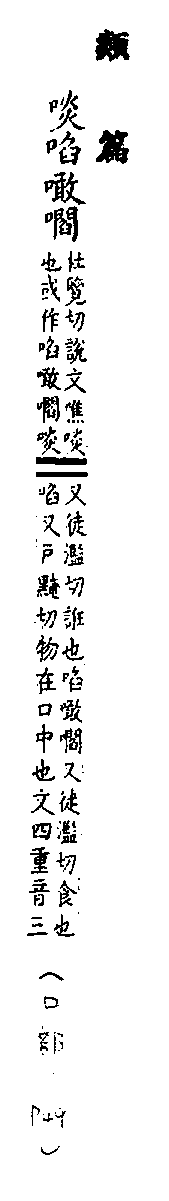 類篇
啖啗噉嚪
杜覽切說文噍啖
也或作啗噉嚪啖
又徒濫切誑也啗噉嚪又徒濫切食也
啗又戶黤切物在口中也文四重音三
(口部.P49)